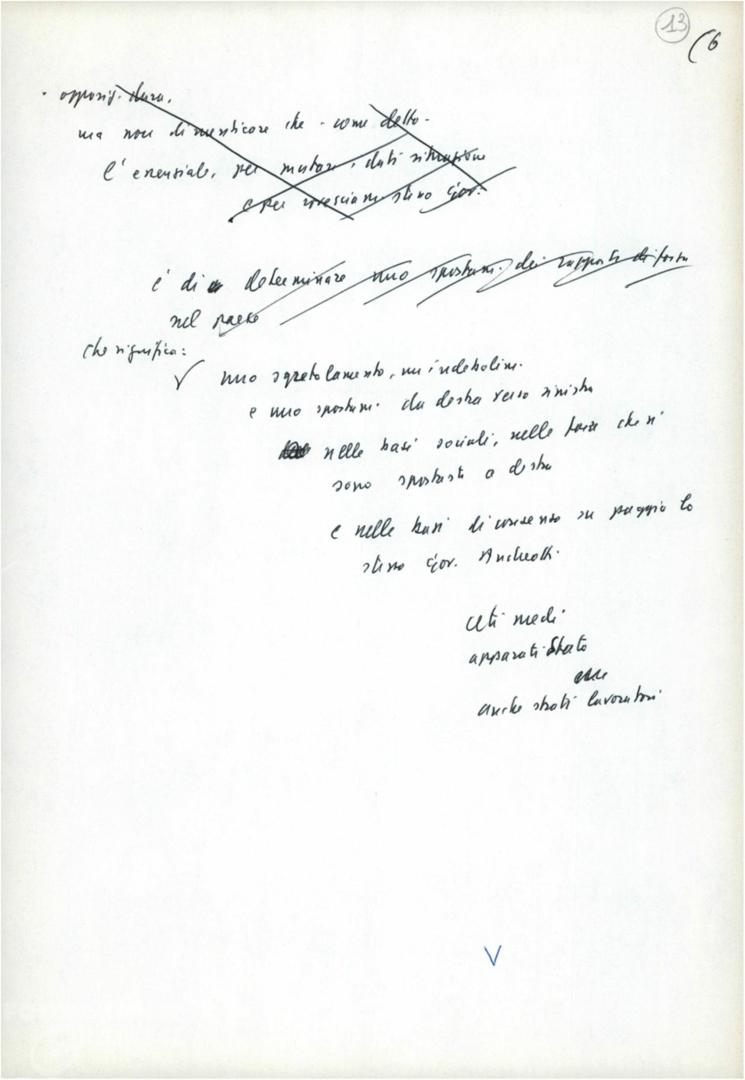 13
(6
· opposiz. dura.
ma non dimenticare che - come detto -
l'essenziale, per mutare i dati situazione
e per rovesciare stesso gov.
è di determinare uno spostam. dei rapporti di forza
nel paese
Che significa:
V uno sgretolamento, un indebolim.
e uno spostam. da destra verso sinistra
nelle basi sociali, nelle forze che si
sono spostate a destra
e nelle basi di consenso su poggia lo
stesso gov. Andreotti.
Ceti medi
apparati Stato
anche strati lavoratori
V